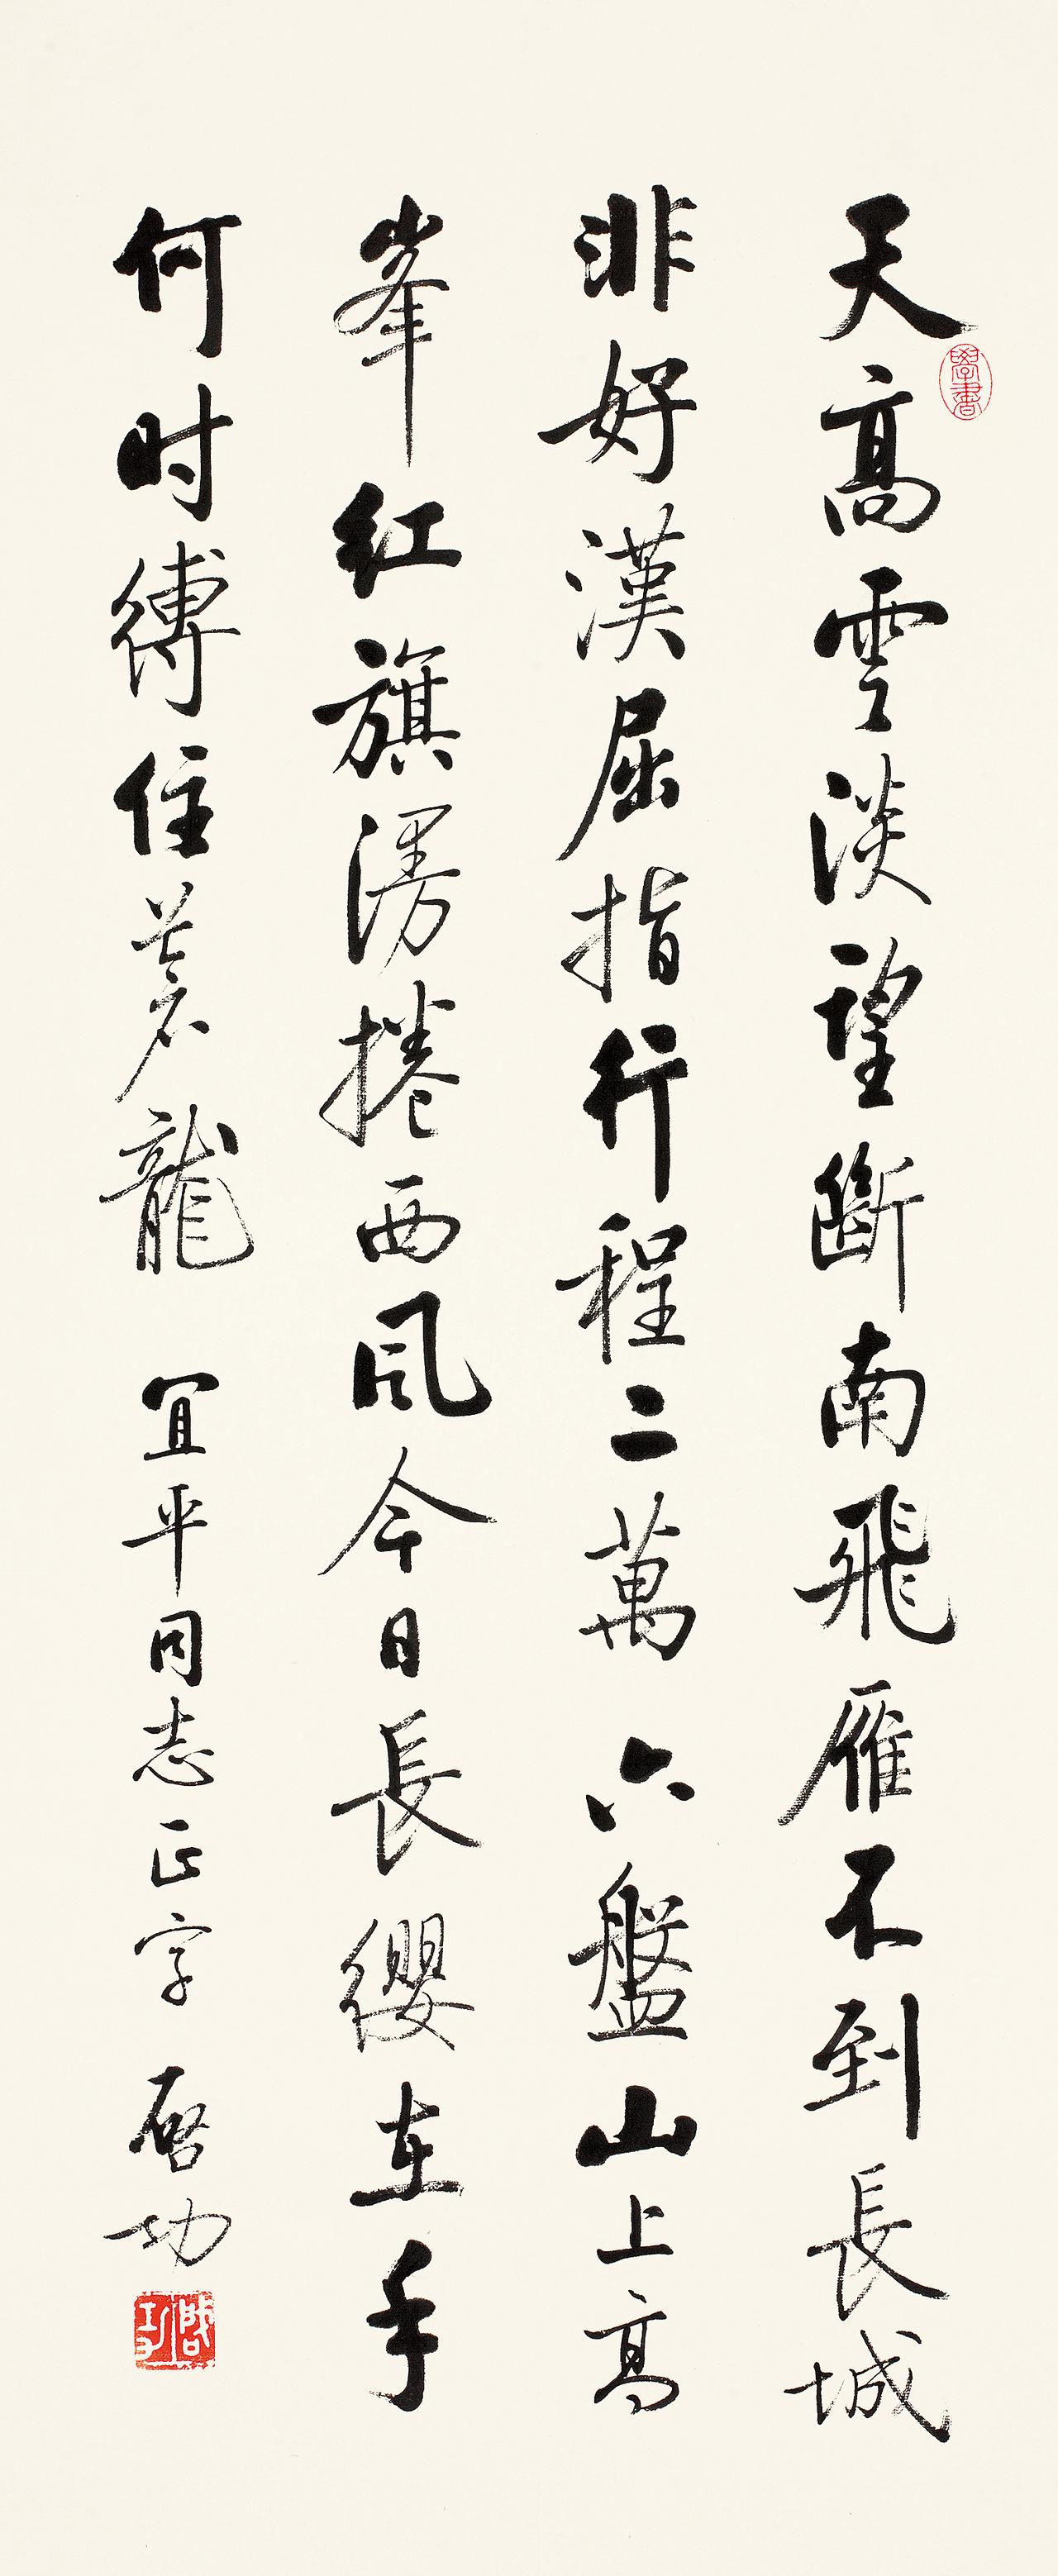 天高雲淡望斷南飛雁不到長城
非好漢屈指行程二萬六盤山上高
峯红旗漫捲西风今日長纓在手
何时缚住苍龍
宜平同志正字
启功
學書
啟功